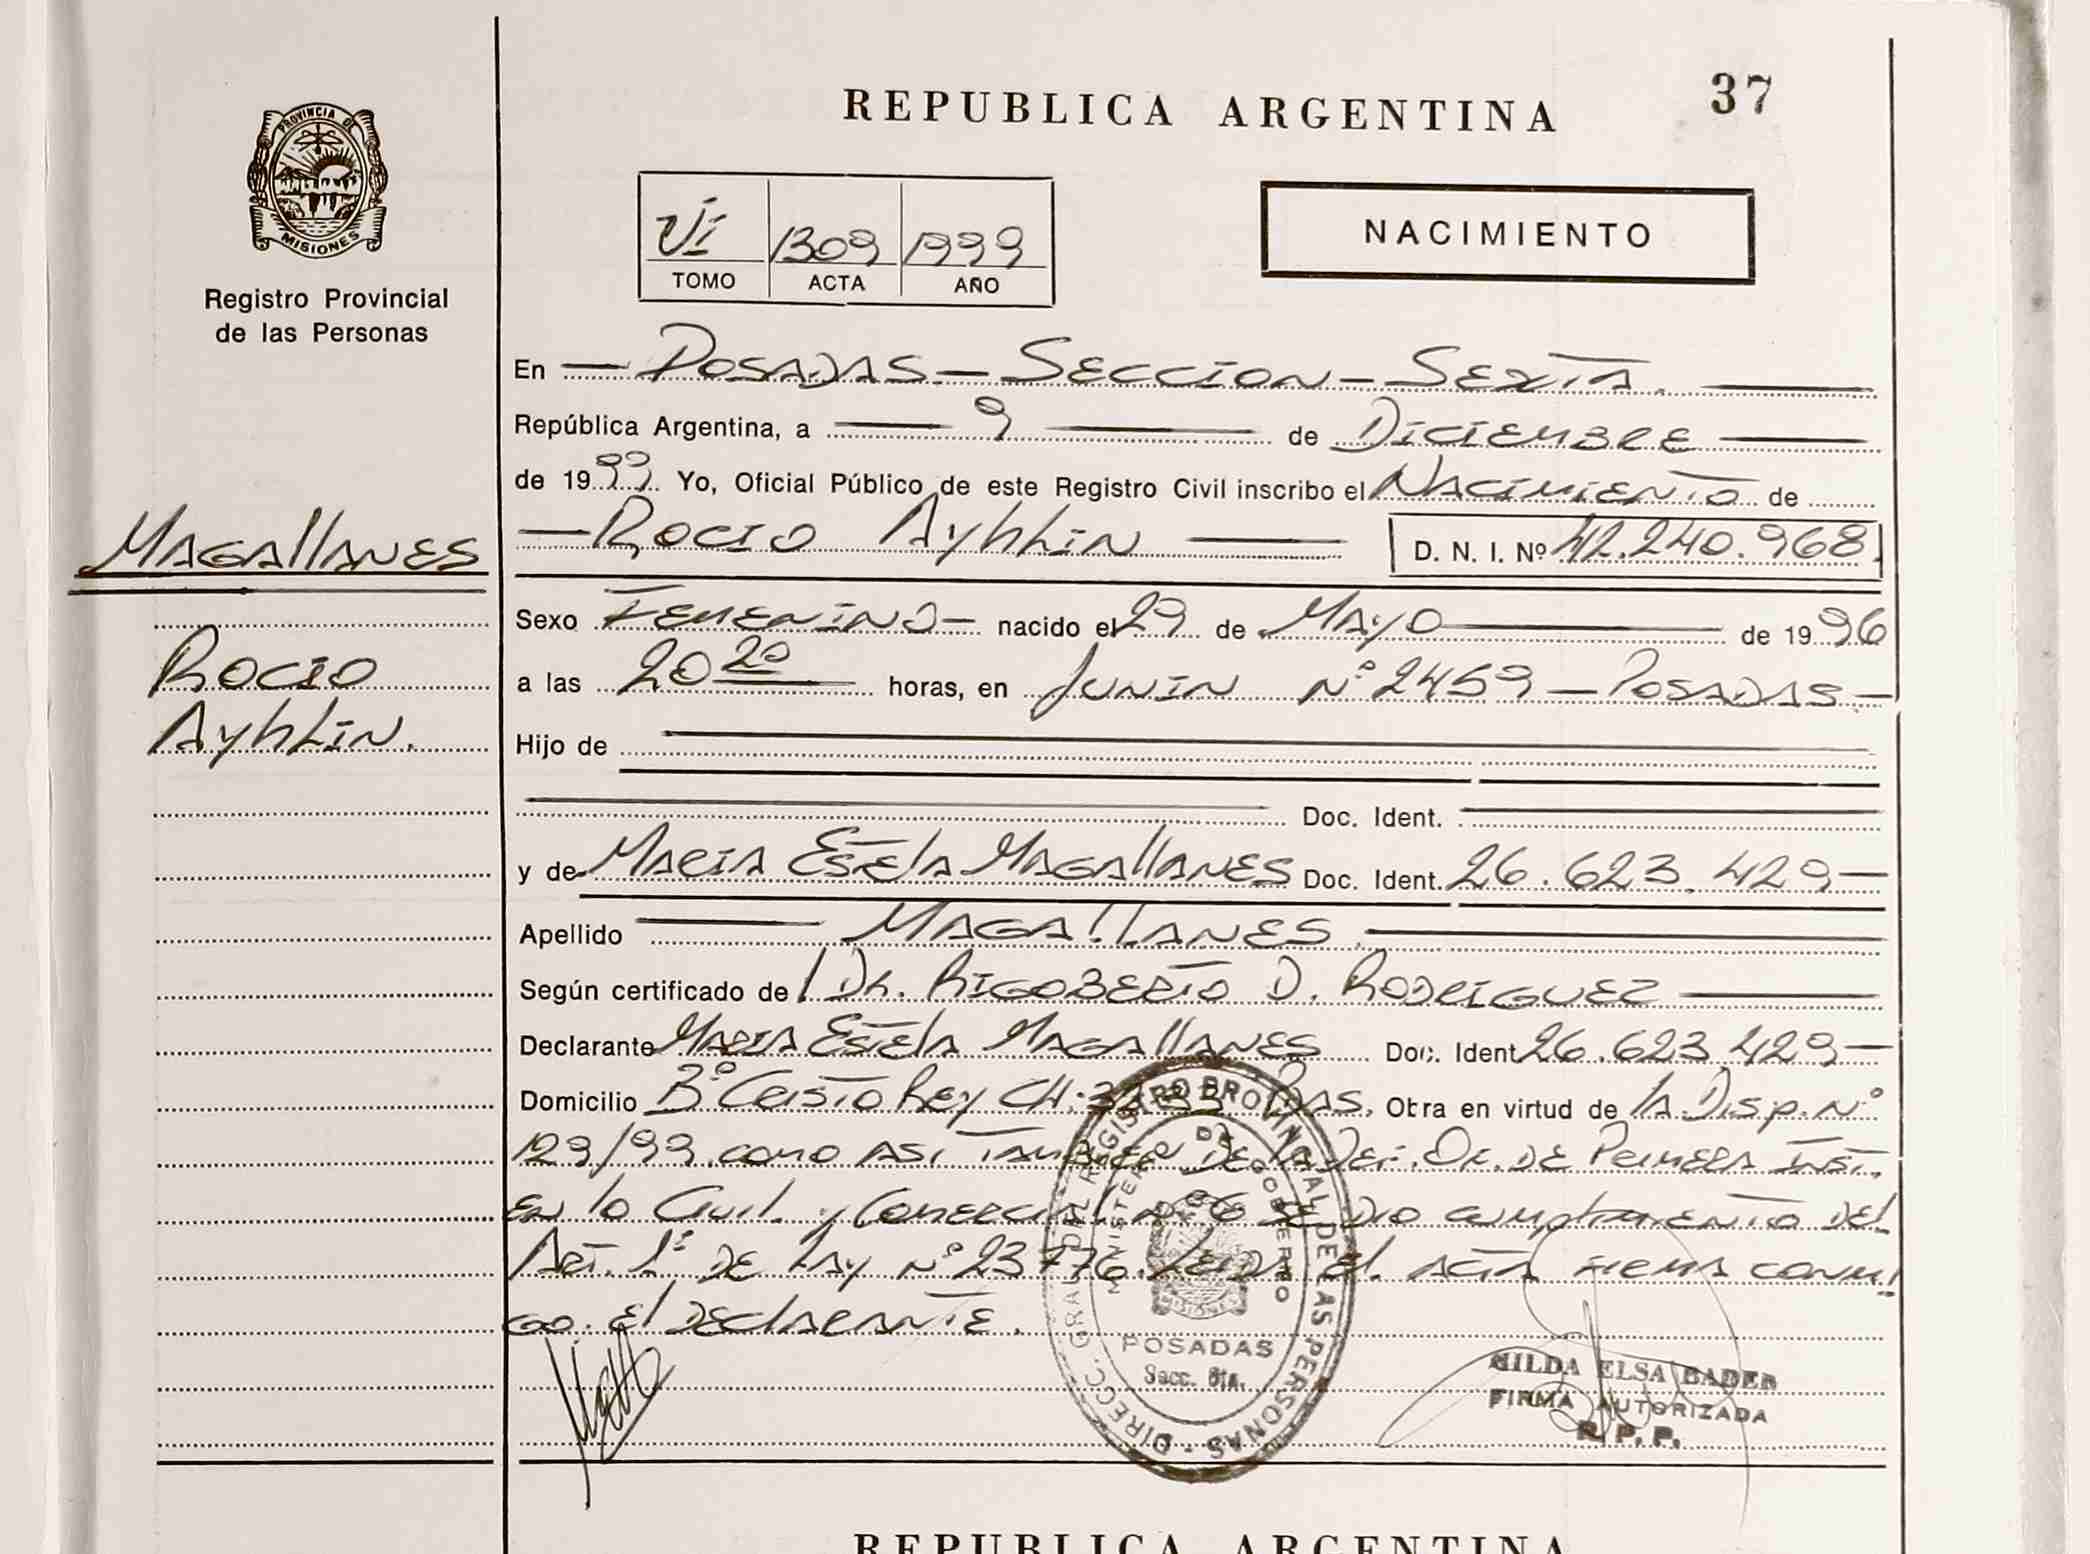 REPUBLICA ARGENTINA
37
PROVINCIA DE
MISIONES
Registro Provincial
de las Personas
VI 1309 1999
TOMO ACTA AÑO
NACIMIENTO
En — POSADAS — SECCION — SEXTA.
República Argentina, a — 9 — de DICIEMBRE
de 1999. Yo, Oficial Público de este Registro Civil inscribo el NACIMIENTO de
— ROCIO AyhLin — D. N. I. Nº 42.240.968
MAGAllANES
ROCIO
AyhLin.
Sexo FEMENINO — nacido el 29 de MAYO de 1996
a las 20 20 horas, en JUNIN Nº 2459 — POSADAS —
Hijo de
Doc. Ident.
y de MARIA ESTElA MAGAllANES Doc. Ident. 26.623.429 —
Apellido — MAGAllANES
Según certificado de l DR. RIGOBERTO D. RODRIGUEZ
Declarante MARIA ESTElA MAGAllANES Doc. Ident 26.623.429 —
Domicilio Bº CRISTO REY CH. PDAS. Otra en virtud de lA DISP. Nº
129/99. COMO ASI TAMBIEN DE lA DEF. OF. DE PRIMERA INST.
EN lO CIVIL y COMERCIAL Nº 6 SE DIO CUMPLIMIENTO DEL
ART. 1º DE LAY Nº 23776. LEIDA El ACTA FIRMA CONMI
GO. El DECLARANTE.
DIRECC. GRAL. DEL REGISTRO PROVINCIAL DE LAS PERSONAS
MINISTERIO DE GOBIERNO
MISIONES
POSADAS
Secc. 6ta.
HILDA ELSA BADER
FIRMA AUTORIZADA
R. P. P.
REPUBLICA ARGENTINA